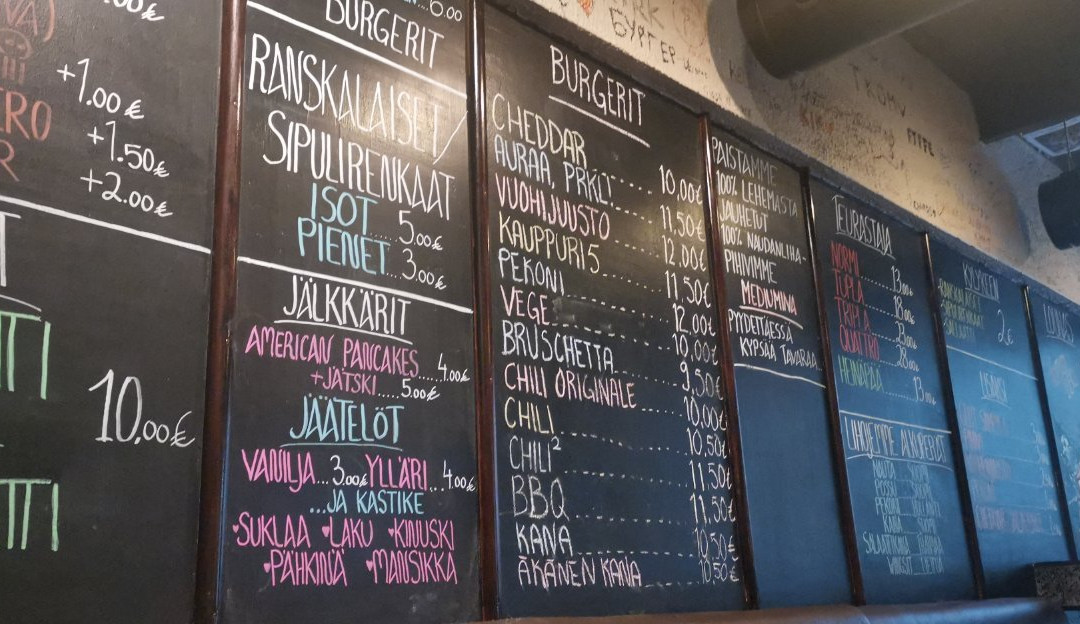 +1.00 €
+1.50€
+2.00 €
10,00€
6.00
BURGERIT
RANSKALAISET/
SIPULIRENKAAT
ISOT 5.00€
PIENET...3.00€
JÄLKKÄRIT
AMERICAN PANCAKES....4.00€
+JÄTSKI.....5.00€
JÄÄTELÖT
VANILJA...3.00€ YLLÄRI...4.00€
...JA KASTIKE
♥SUKLAA ♥LAKU ♥KINUSKI
♥PÄHKINÄ ♥MANSIKKA
BURGERIT
CHEDDAR 10,00€
AURAA, PRKL! 11,50€
VUOHIJUUSTO 12.00€
KAUPPURI5 11,50€
PEKONI 12,00€
VEGE 10,00€
BRUSCHETTA 9,50€
CHILI ORIGINALE 10,00€
CHILI 10,50€
CHILI² 11,50€
BBQ 11,50€
KANA 10,50€
ÄKÄNEN KANA 10,50€
PAISTAMME
100% LEHEMASTA
JAUHETUT
100% NAUDANLIHA-
PIHVIMME
MEDIUMINA
PYYDETTÄESSÄ
KYPSÄÄ TAVARAA
TEURASTAJA
NORMI 13.00€
TUPLA 18.00€
TRIPLA 23.00€
QUATTRO 28.00€
HEINÄPÄÄ 13.00€
KYLKEEN
2€
LOUNAS
БУРГЕР